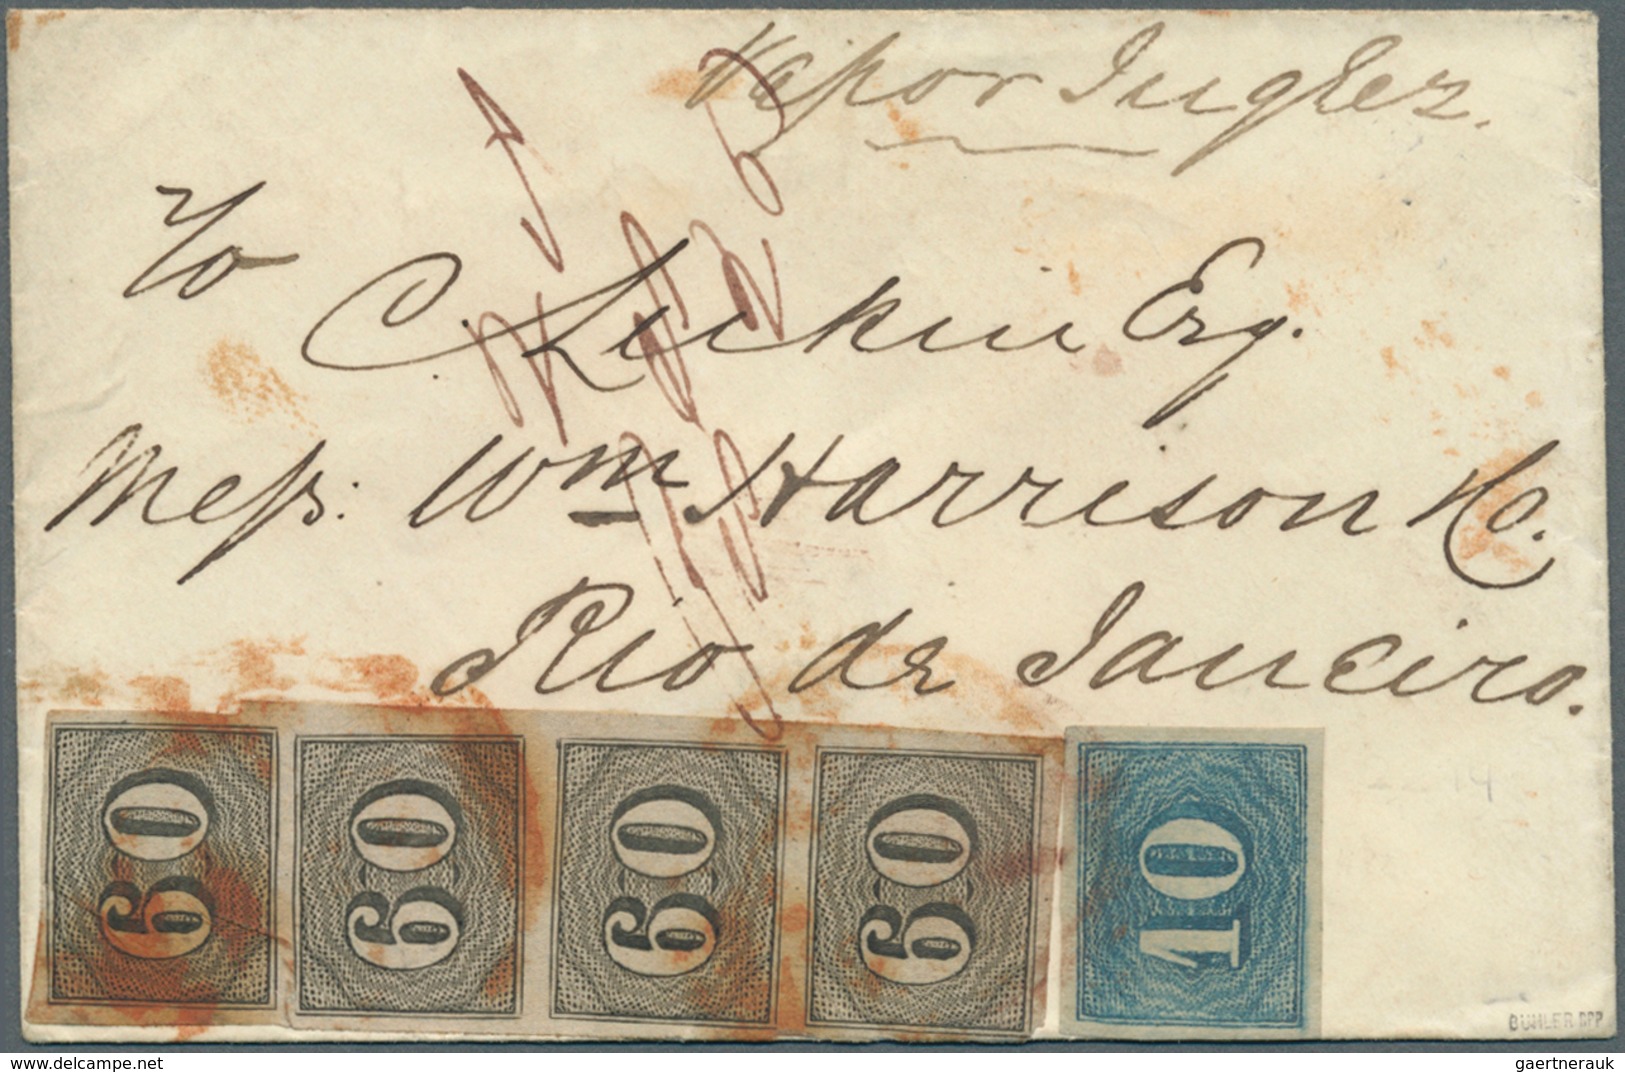 Vapor Inglez.
To
C. Luckin Esq.
Mess: Wm Harrison & Co.
Rio de Janeiro.
60 60 60 60 10
14
BÜHLER BPP
www.delcampe.net
gaertnerauk